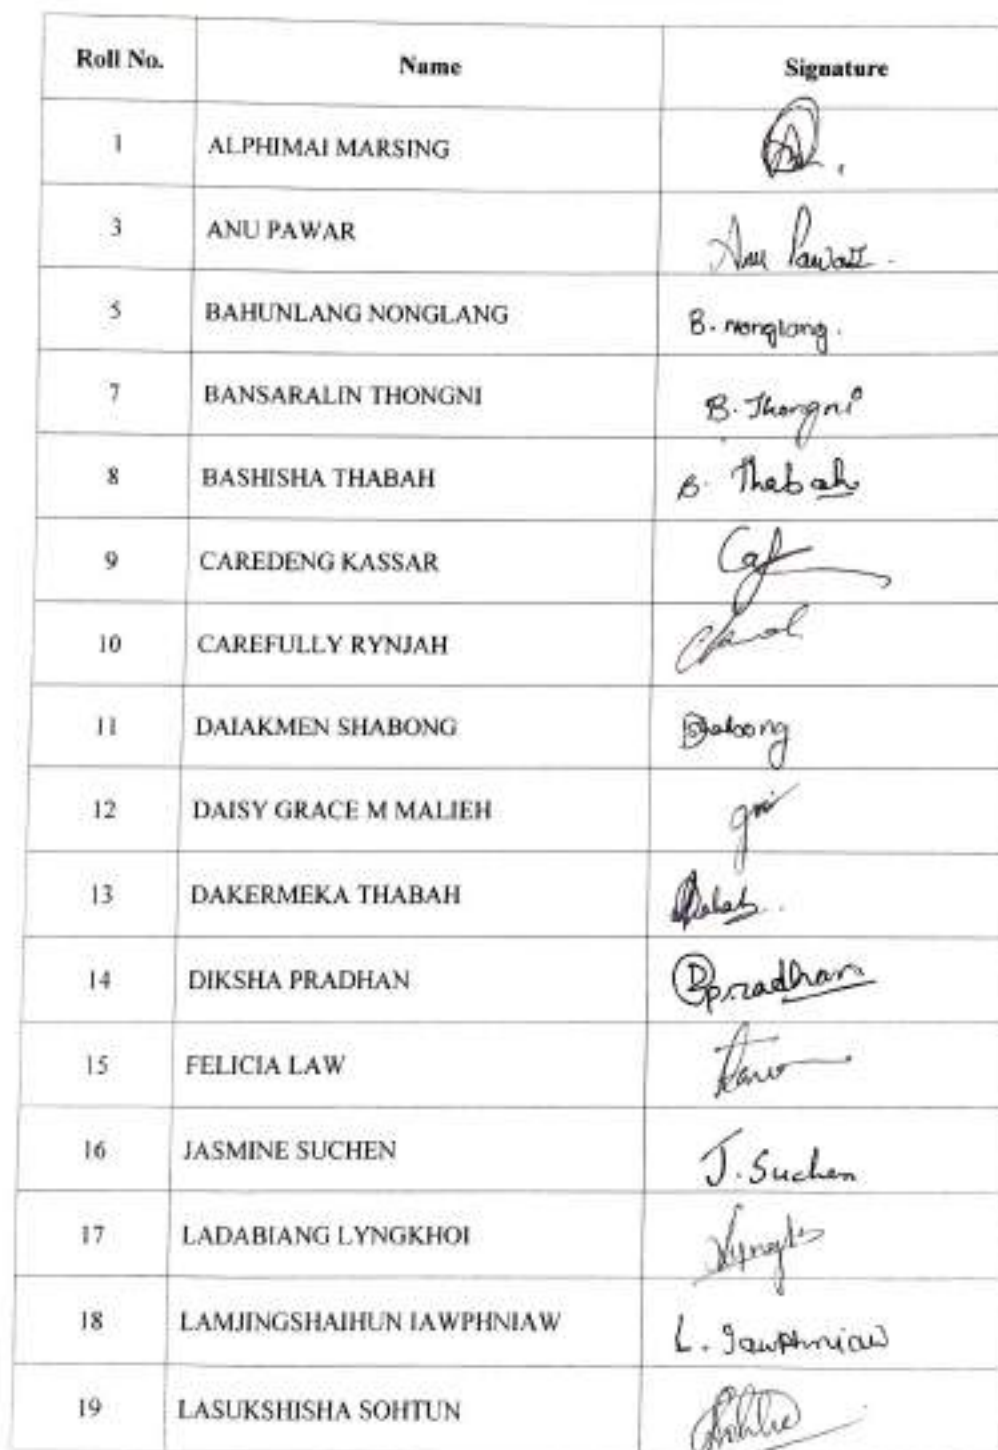 Roll No. Name Signature
1 ALPHIMAI MARSING
3 ANU PAWAR Anu Pawar.
5 BAHUNLANG NONGLANG B. nonglang.
7 BANSARALIN THONGNI B. Thongni
8 BASHISHA THABAH B. Thabah
9 CAREDENG KASSAR
10 CAREFULLY RYNJAH
11 DAIAKMEN SHABONG
12 DAISY GRACE M MALIEH
13 DAKERMEKA THABAH
14 DIKSHA PRADHAN Dpradhan
15 FELICIA LAW
16 JASMINE SUCHEN J. Suchen
17 LADABIANG LYNGKHOI
18 LAMJINGSHAIHUN IAWPHNIAW L. Iawphniaw
19 LASUKSHISHA SOHTUN